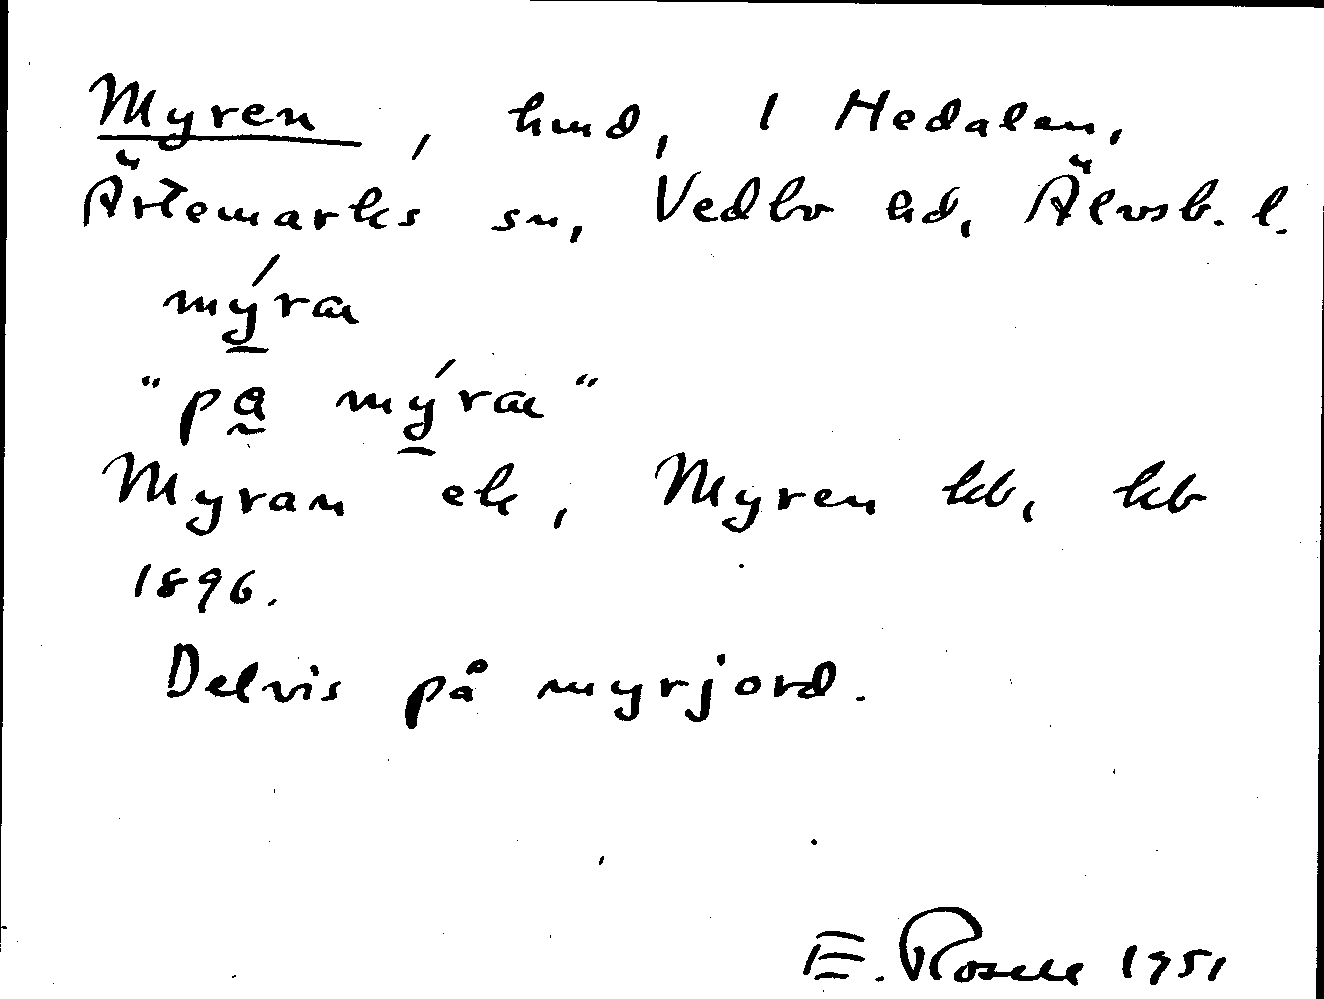 Myren, hmd, 1 Hedalen,
Ärtemarks sn, Vedbo hd, Älvsb. l.
mýræ
"pa mýræ"
Myran ek, Myren kb, kb
1896.
Delvis på myrjord.
E. Rosell 1951